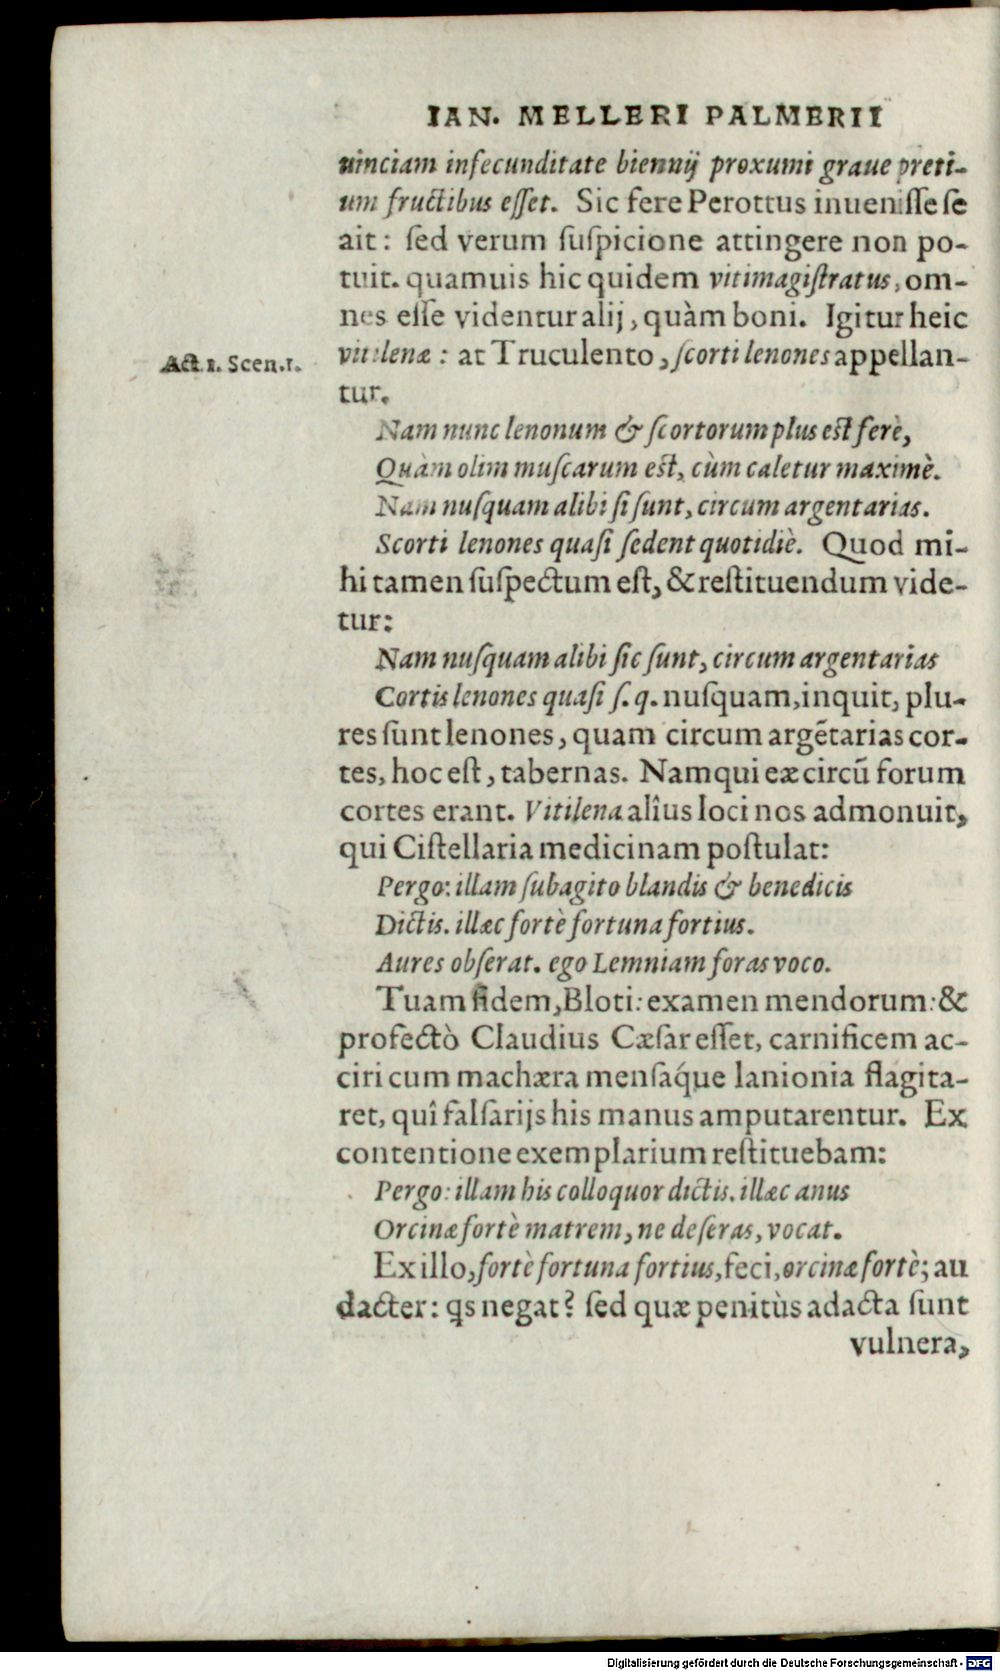 IAN. MELLERI PALMERII
uinciam infecunditate biennij proxumi graue preti-
um fructibus esset. Sic fere Perottus inuenisse se
ait: sed verum suspicione attingere non po-
tuit. quamuis hic quidem vitimagistratus, om-
nes esse videntur alij, quàm boni. Igitur heic
Act. 1. Scen. 1.
vitilenæ: at Truculento, scorti lenones appellan-
tur.
Nam nunc lenonum & scortorum plus est ferè,
Quàm olim muscarum est, cùm caletur maximè.
Nam nusquam alibi si sunt, circum argentarias.
Scorti lenones quasi sedent quotidiè. Quod mi-
hi tamen suspectum est, & restituendum vide-
tur:
Nam nusquam alibi sic sunt, circum argentarias
Cortis lenones quasi s. q. nusquam, inquit, plu-
res sunt lenones, quam circum argẽtarias cor-
tes, hoc est, tabernas. Nam qui eæ circũ forum
cortes erant. Vitilena alîus loci nos admonuit,
qui Cistellaria medicinam postulat:
Pergo: illam subagito blandis & benedicis
Dictis. illæc fortè fortuna fortius.
Aures obserat. ego Lemniam foras voco.
Tuam fidem, Bloti: examen mendorum: &
profectò Claudius Cæsar esset, carnificem ac-
ciri cum machæra mensáque lanionia flagita-
ret, quî falsarijs his manus amputarentur. Ex
contentione exemplarium restituebam:
Pergo: illam his colloquor dictis. illæc anus
Orcinæ fortè matrem, ne deseras, vocat.
Ex illo, fortè fortuna fortius, feci, orcinæ fortè; au
dacter: qs negat? sed quæ penitùs adacta sunt
vulnera,
Digitalisierung gefördert durch die Deutsche Forschungsgemeinschaft - DFG